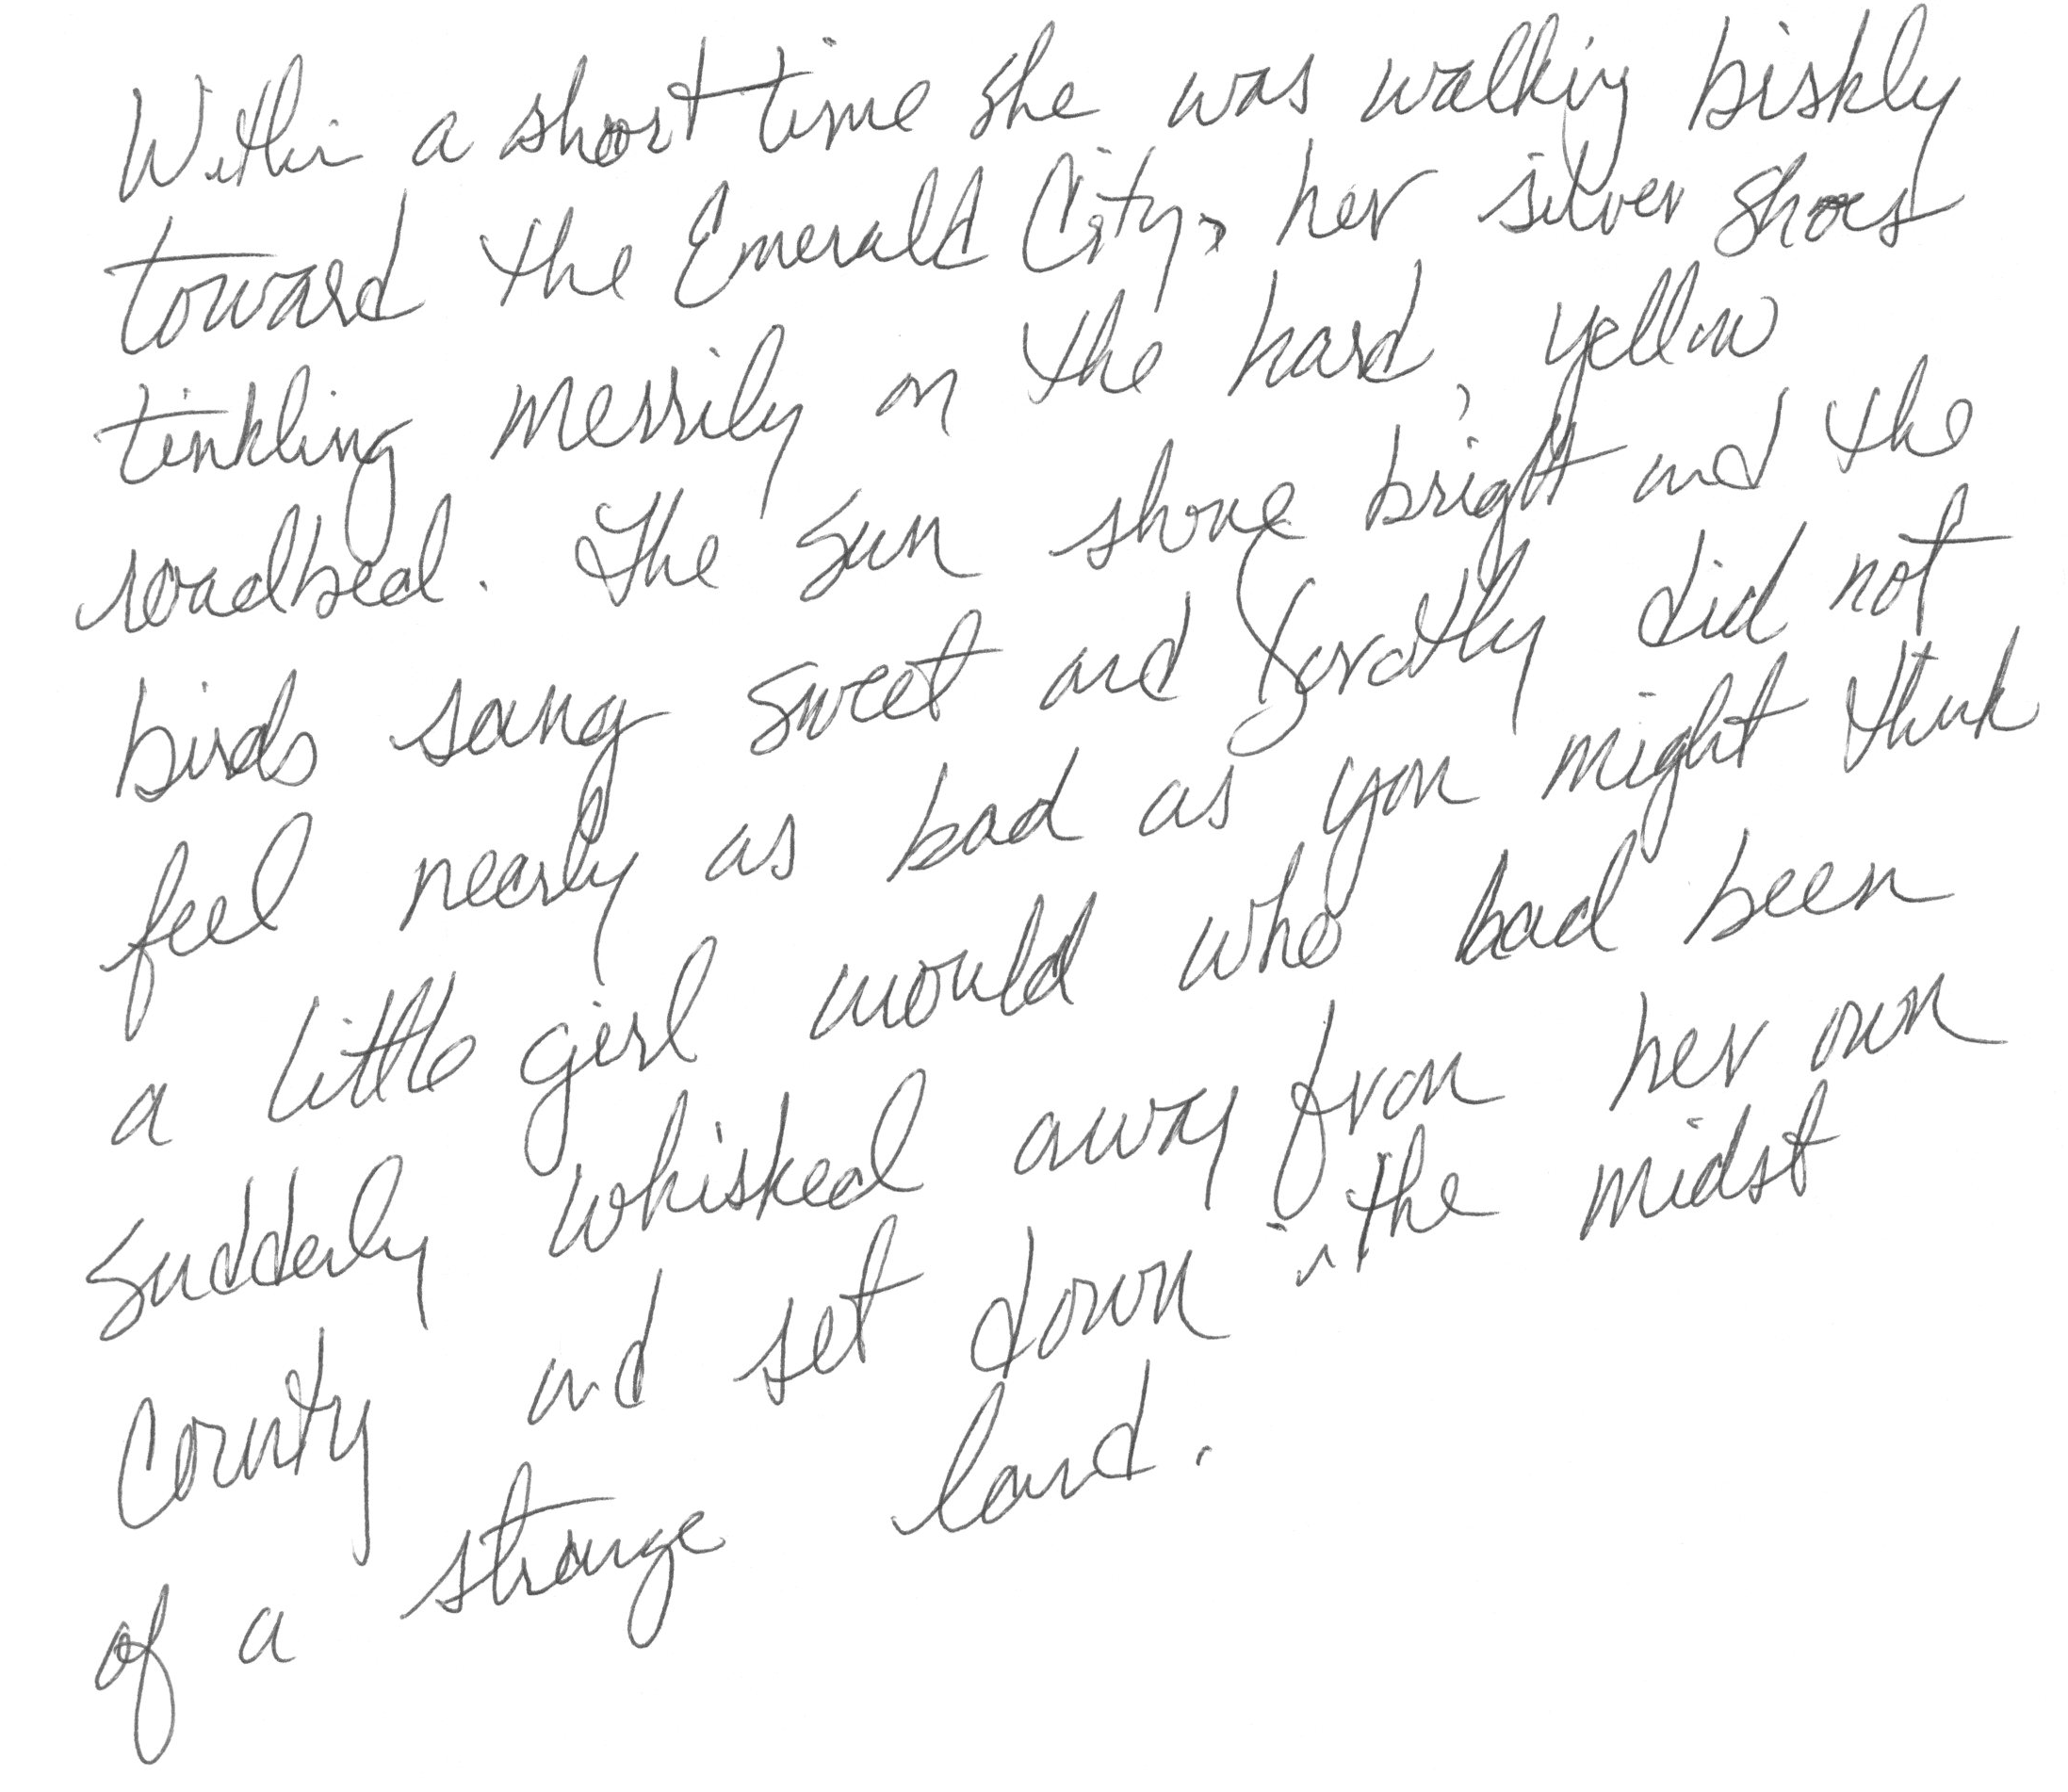 Within a short time she was walking biskly
toward the Emerald City, her silver shoes
tinkling merrily on the hard, yellow
roadbed. The sun shone bright and the
birds sang sweet and Dorothy did not
feel nearly as bad as you might think
a little girl would who had been
suddenly whisked away from her own
County and set down in the midst
of a strange land.